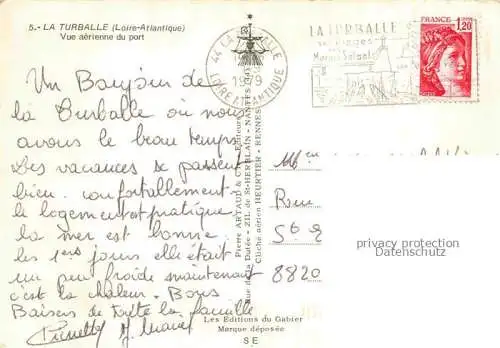 5.- LA TURBALLE (Loire-Atlantique)
Vue aérienne du port
44 LA TURBALLE
1979
LOIRE ATLANTIQUE
LA TURBALLE
FRANCE
1,20
Un Bonjour de
la Turballe où nous
avons le beau temps.
Les vacances se passent
bien. confortablement
le logement est pratique
la mer est bonne.
les 1ers jours elle était
un peu froide maintenant
c'est la chaleur. Bons
Baisers de toute la famille
Pierre ARTAUD & Cie Editeurs
Rue de la Dutée - ZIL de St-HERBLAIN - NANTES
Cliché aérien HEURTIER - RENNES
Rue
8820
privacy protection
Datenschutz
Les Editions du Gabier
Marque déposée
SE